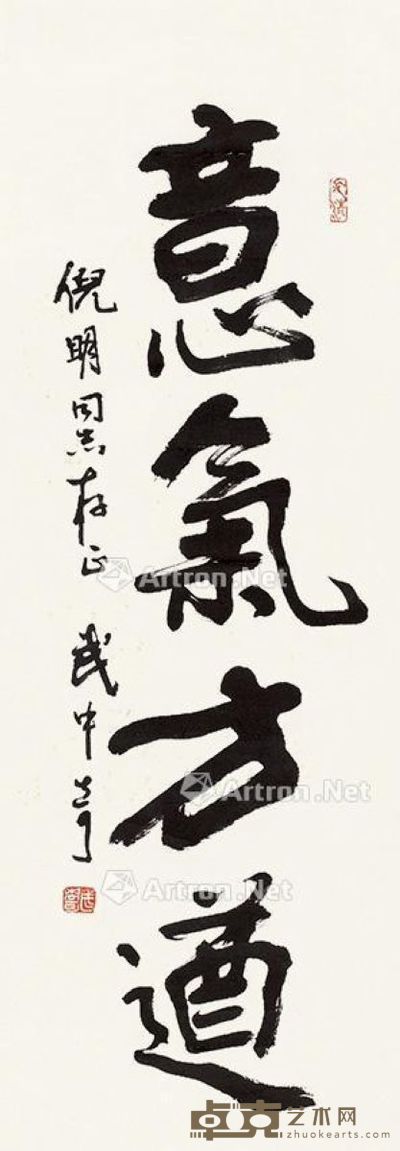 意氣方遒
倪明同志存正 武中奇
Artron.Net
Artron.Net
Artron.Net
卓克艺术网
zhuokearts.com